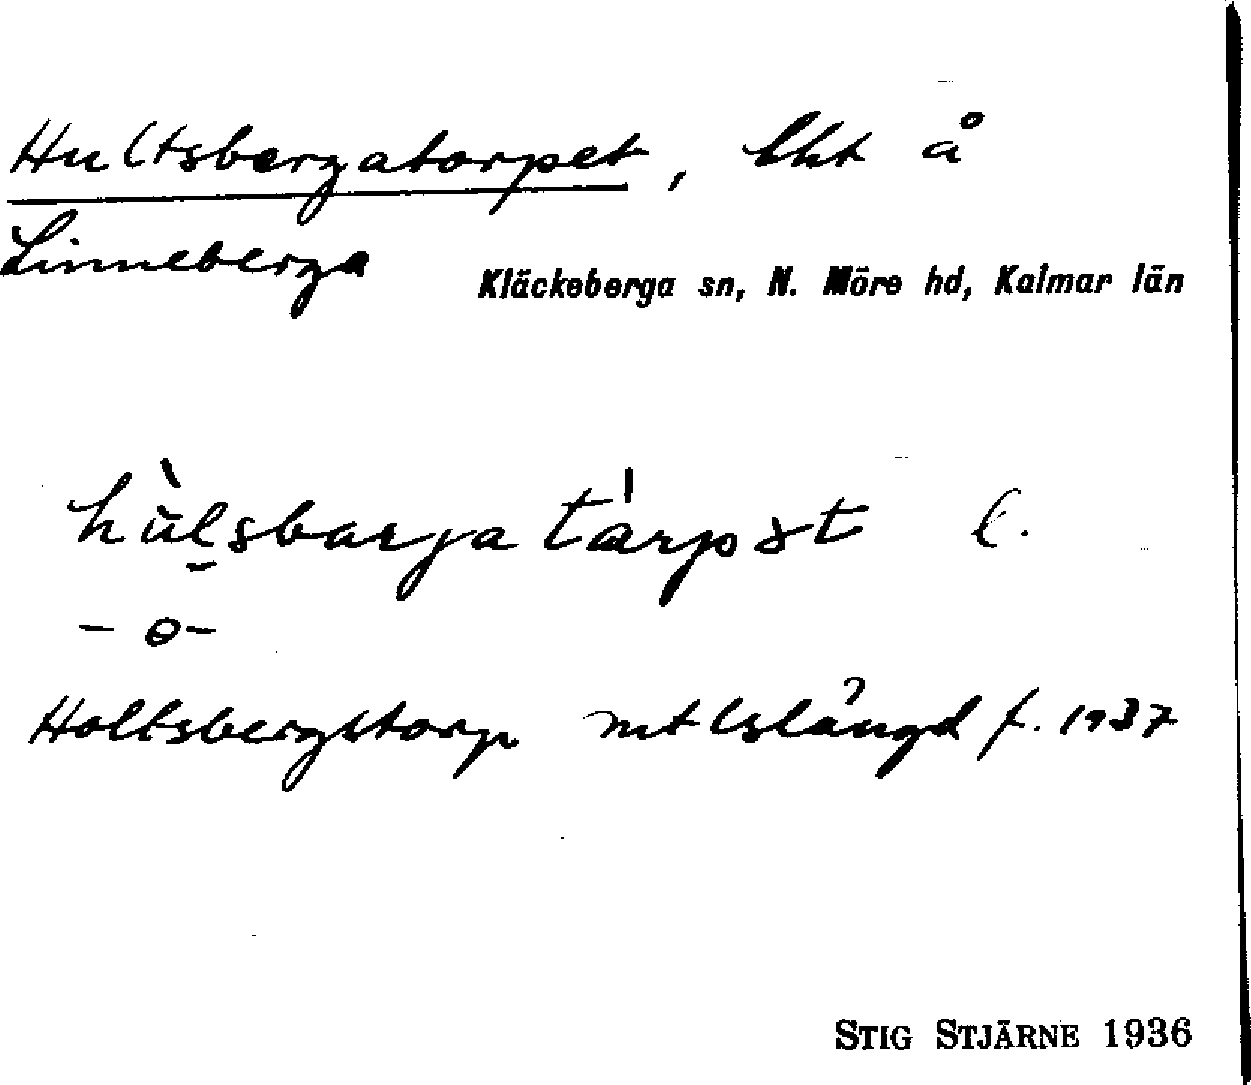 Hultsbergatorpet, lht å
Linneberga
Kläckeberga sn, N. Möre hd, Kalmar län
hùlsbarjatárpət l.
- o -
Holtsbergstorp mtlslängd f. 1937
STIG STJÄRNE 1936